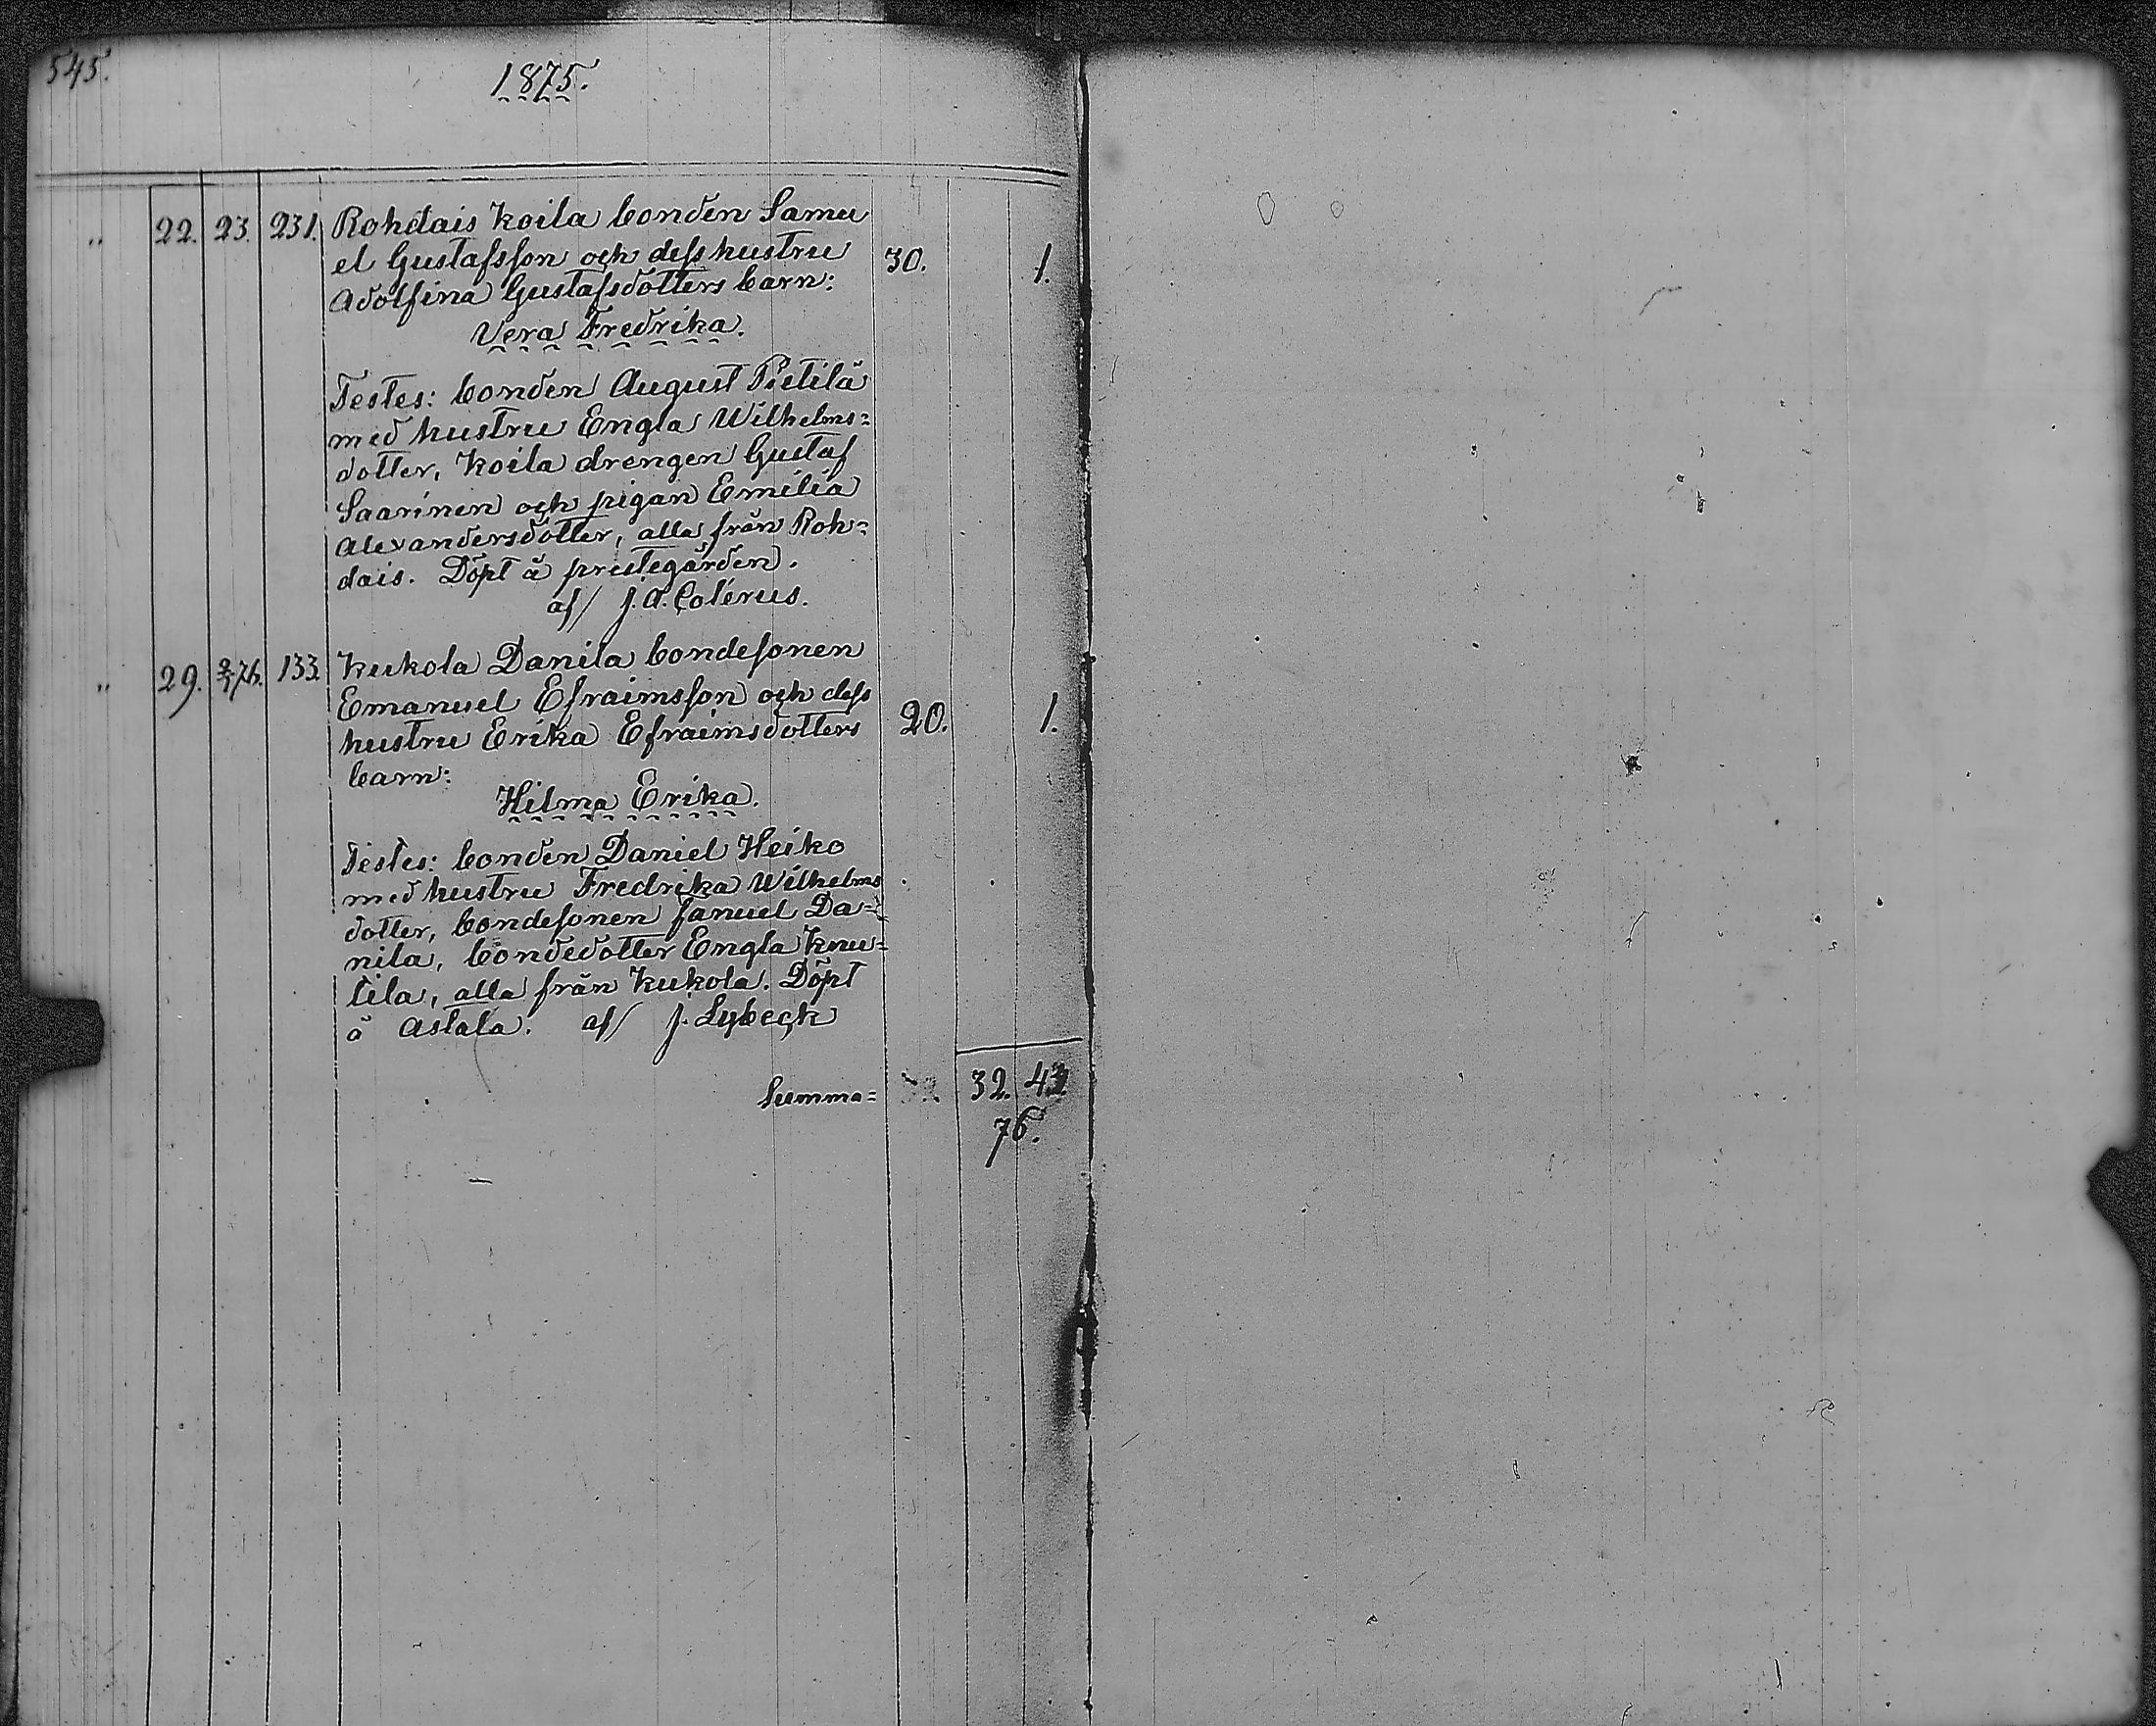 545.
1875.
" 22. 23. 231. Rohdais Koila bonden Samu
el Gustafsson och dess hustru 30. 1.
Adolfina Gustafsdotters barn:
Vera Fredrika.
Testes: bonden August Pietilä
med hustru Engla Wilhelms=
dotter, Koila drengen Gustaf
Saarinen och pigan Emilia
Alexandersdotter, alla från Roh=
dais. Döpt å prestegården.
af/ J. A. Colérus.
" 29. 2/1 76. 133. Kukola Danila bondesonen
Emanuel Efraimsson och dess
hustru Erika Efraimsdotters 20. 1.
barn:
Hilma Erika.
Testes: bonden Daniel Heiko
med hustru Fredrika Wilhelms
dotter, bondesonen Samuel Da=
nila, bondedotter Engla Knu=
tila, alla från Kukola. Döpt
å Astala. af/ J. Lybeck
Summa= 32.
76.